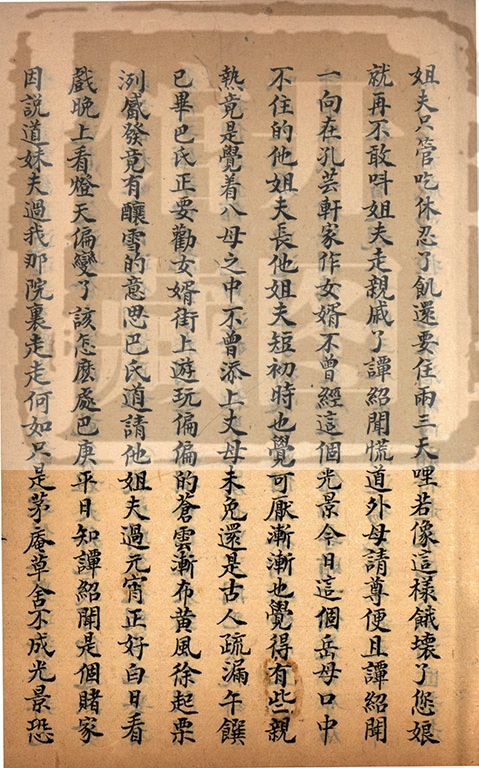 姐夫只管吃休忍了飢還要住兩三天哩若像這樣餓壞了您娘
就再不敢呌姐夫走親戚了譚紹聞慌道外母請尊便且譚紹聞
一向在孔芸軒家作女婿不曾經這個光景今日這個岳母口中
不住的他姐夫長他姐夫短初時也覺可厭漸漸也覺得有些親
熱竟是覺着八母之中不曾添上丈母未免還是古人疏漏午饌
已畢巴氏正要勸女婿街上游玩偏偏的蒼雲漸布黃風徐起栗
冽觱發竟有釀雪的意思巴氏道請他姐夫過元宵正好白日看
戲晚上看燈天偏變了該怎麽處巴庚平日知譚紹聞是個賭家
因説道妹夫過我那院裏走走何如只是茅庵草舍不成光景恐